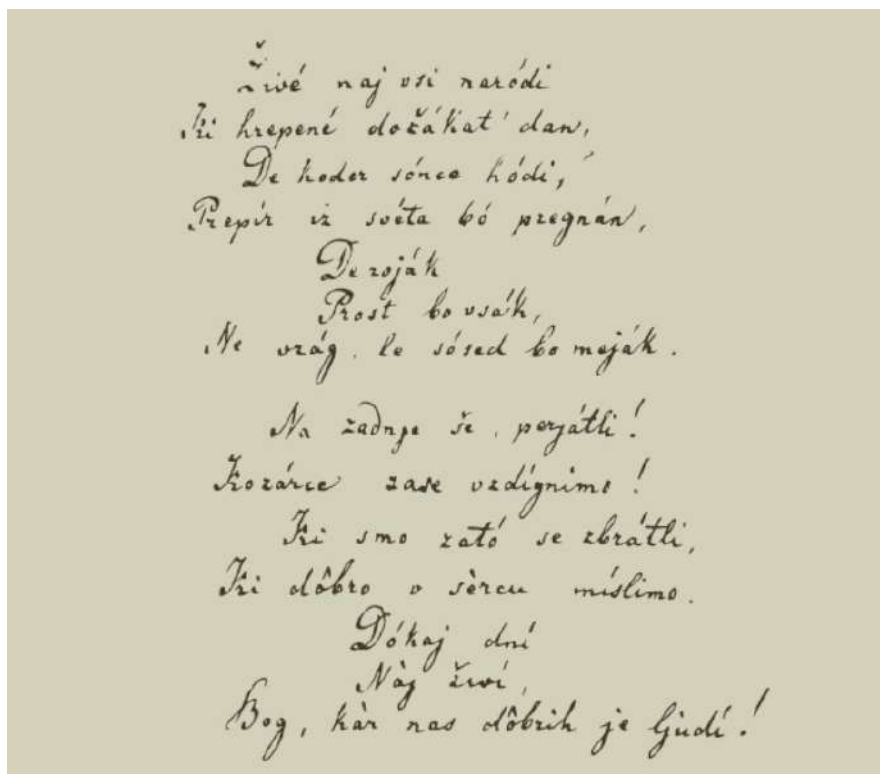 Živé naj vsi naródi
Ki hrepené dožákat' dan,
De koder sónce hódi,
Prepír iz svéta bó pregnán,
De roják
Prost bo vsák,
Ne vrág, le sósed bo meják.
Na zadnje še, perjátli!
Kozárce zase vzdígnimo!
Ki smo zató se zbrátli,
Ki dôbro v sèrcu míslimo.
Dókaj dní
Nàj živí,
Bog, kàr nas dôbrih je ljudí!